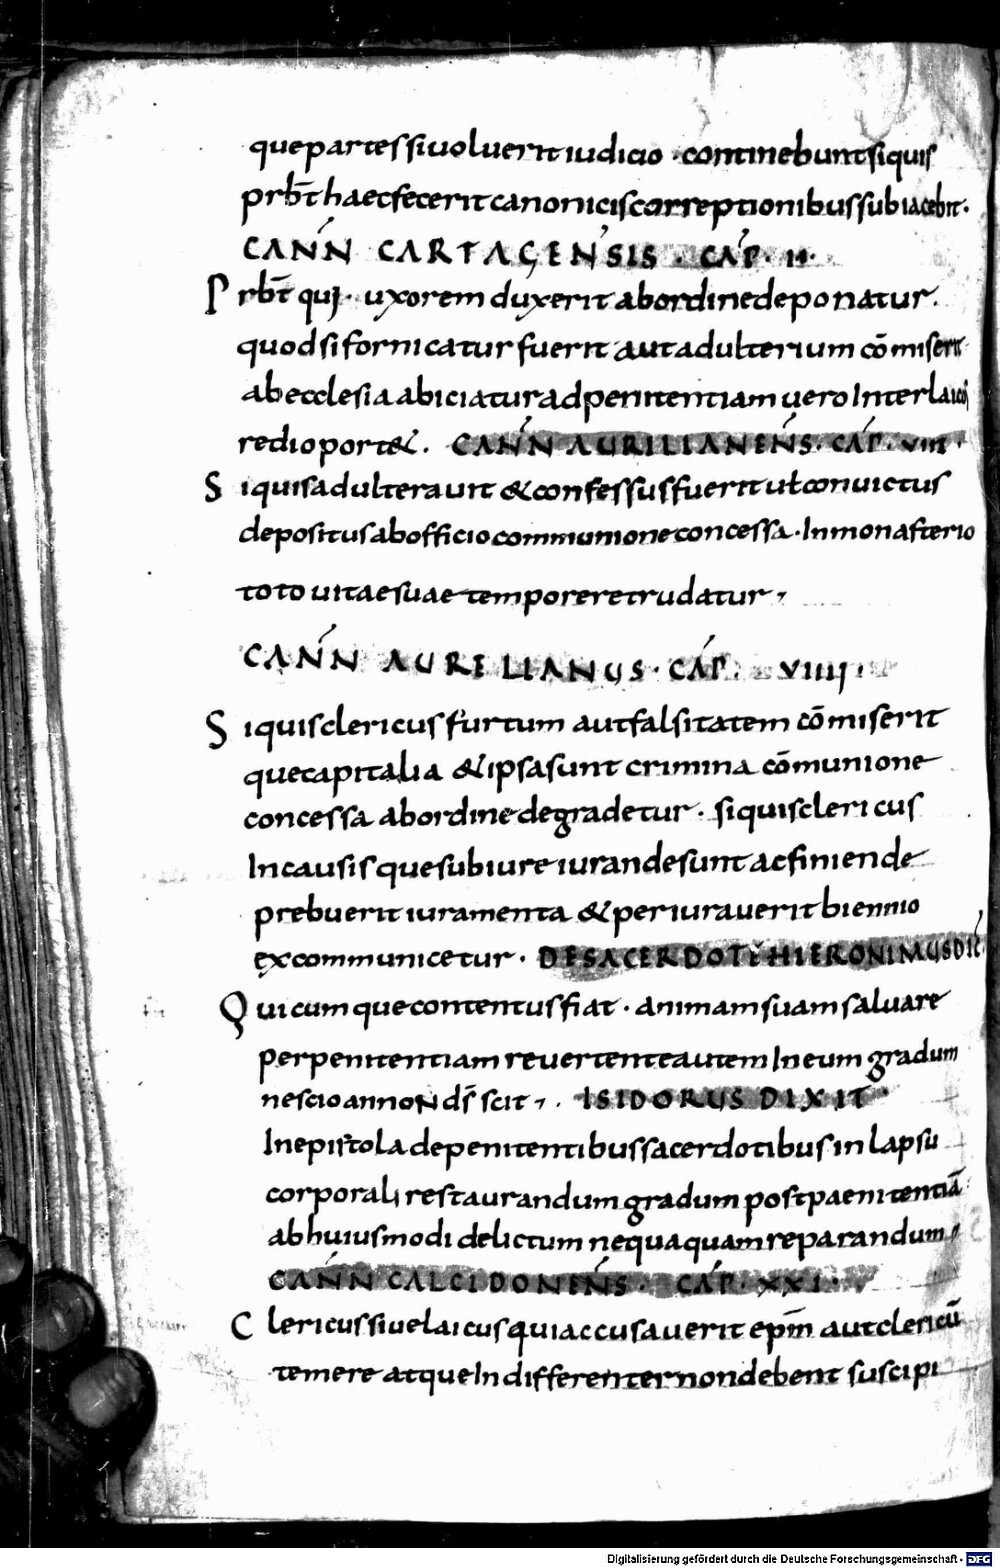 que partes si uoluerit iudicio · continebunt si quis
prbt̄ haec fecerit canonicis correptionibus subiacebit·
CANN CARTAGENSIS · CAP · II·
Prbt̄ qui · uxorem duxerit ab ordine deponatur.
quod si fornicatur fuerit aut adulterium cōmiserit
ab ecclesia abiciatur ad penitentiam uero Inter laicos
redi oportet. CANN AURILIANENS· CAP· VIII·
Si quis adulterauit & confessus fuerit uł conuictus
depositus ab officio communione concessa · In monasterio
toto uitae suae tempore retrudatur,
CANN AURELIANUS · CAP. VIIII·
Si quis clericus furtum aut falsitatem cōmiserit
que capitalia & ipsa sunt crimina cōmunione
concessa ab ordine degradetur · si quis clericus
In causis que sub iure iurande sunt ac finiende
prebuerit iuramenta & periurauerit biennio
excommunicetur · DE SACERDOTE HIERONIMUS DIC
Quicumque contentus fiat · animam suam saluare
per penitentiam reuertente autem In eum gradum
nescio an non ds̄ scit, . ISIDORUS DIXIT
In epistola de penitentibus sacerdotibus in lapsu
corporali restaurandum gradum post paenitentiā
ab huiusmodi delictum nequaquam reparandum,
CANN CALCIDONENS · CAP · XXI·
Clericus siue laicus qui accusauerit epm̄ aut clericū
temere atque Indifferenter non debent suscipi
Digitalisierung gefördert durch die Deutsche Forschungsgemeinschaft - DFG